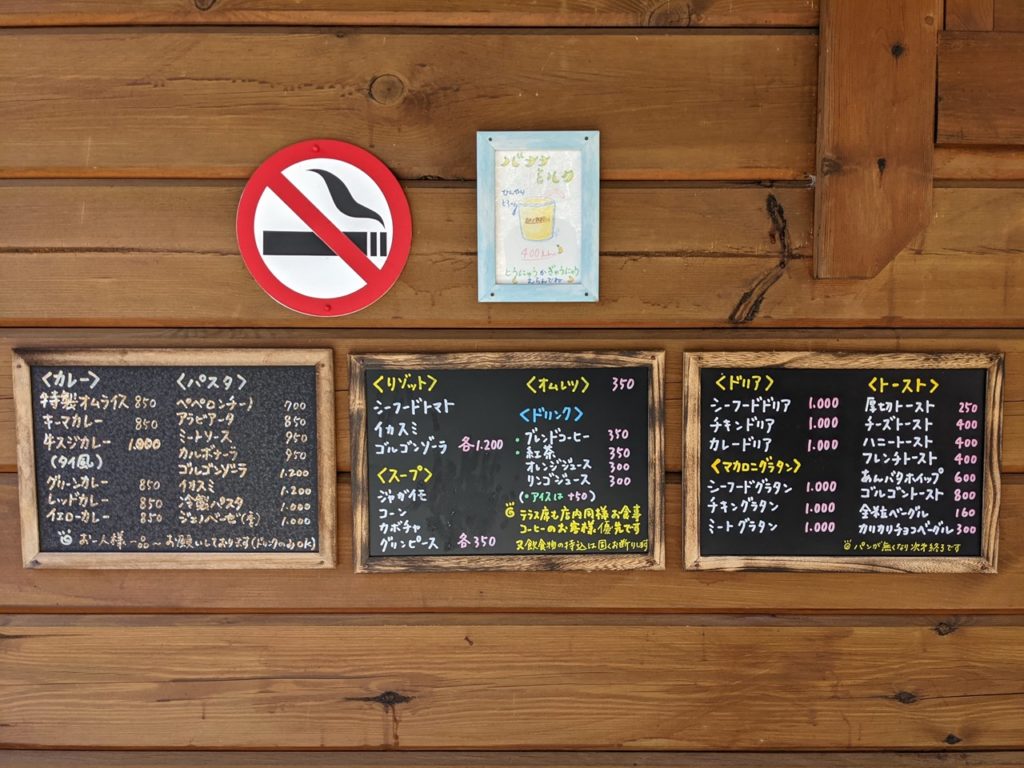 バナナ
ミルク
ひんやり
とろ〜り
400
とうにゅうかぎゅうにゅう
えらんでね
〈カレー〉
特製オムライス 850
キーマカレー 850
牛スジカレー 1.000
(タイ風)
グリーンカレー 850
レッドカレー 850
イエローカレー 850
〈パスタ〉
ペペロンチーノ 700
アラビアータ 850
ミートソース 950
カルボナーラ 950
ゴルゴンゾーラ 1.200
イカスミ 1.200
冷製パスタ 1.000
ジェノベーゼ 1.000
お一人様一品〜お願いしております(ドリンクのみOK)
〈リゾット〉
シーフードトマト
イカスミ
ゴルゴンゾーラ 各1.200
〈スープ〉
ジャガイモ
コーン
カボチャ
グリンピース 各350
〈オムレツ〉 350
〈ドリンク〉
・ブレンドコーヒー 350
・紅茶 350
オレンジジュース 300
リンゴジュース 300
(・アイスは +50)
テラス席も店内同様お食事
コーヒーのお客様優先です
又飲食物の持込は固くお断りします
〈ドリア〉
シーフードドリア 1.000
チキンドリア 1.000
カレードリア 1.000
〈マカロニグラタン〉
シーフードグラタン 1.000
チキングラタン 1.000
ミートグラタン 1.000
〈トースト〉
厚切トースト 250
チーズトースト 400
ハニートースト 400
フレンチトースト 400
あんバタホイップ 600
ゴルゴントースト 800
全粒ベーグル 160
カリカリチョコベーグル 300
パンが無くなり次才終了です